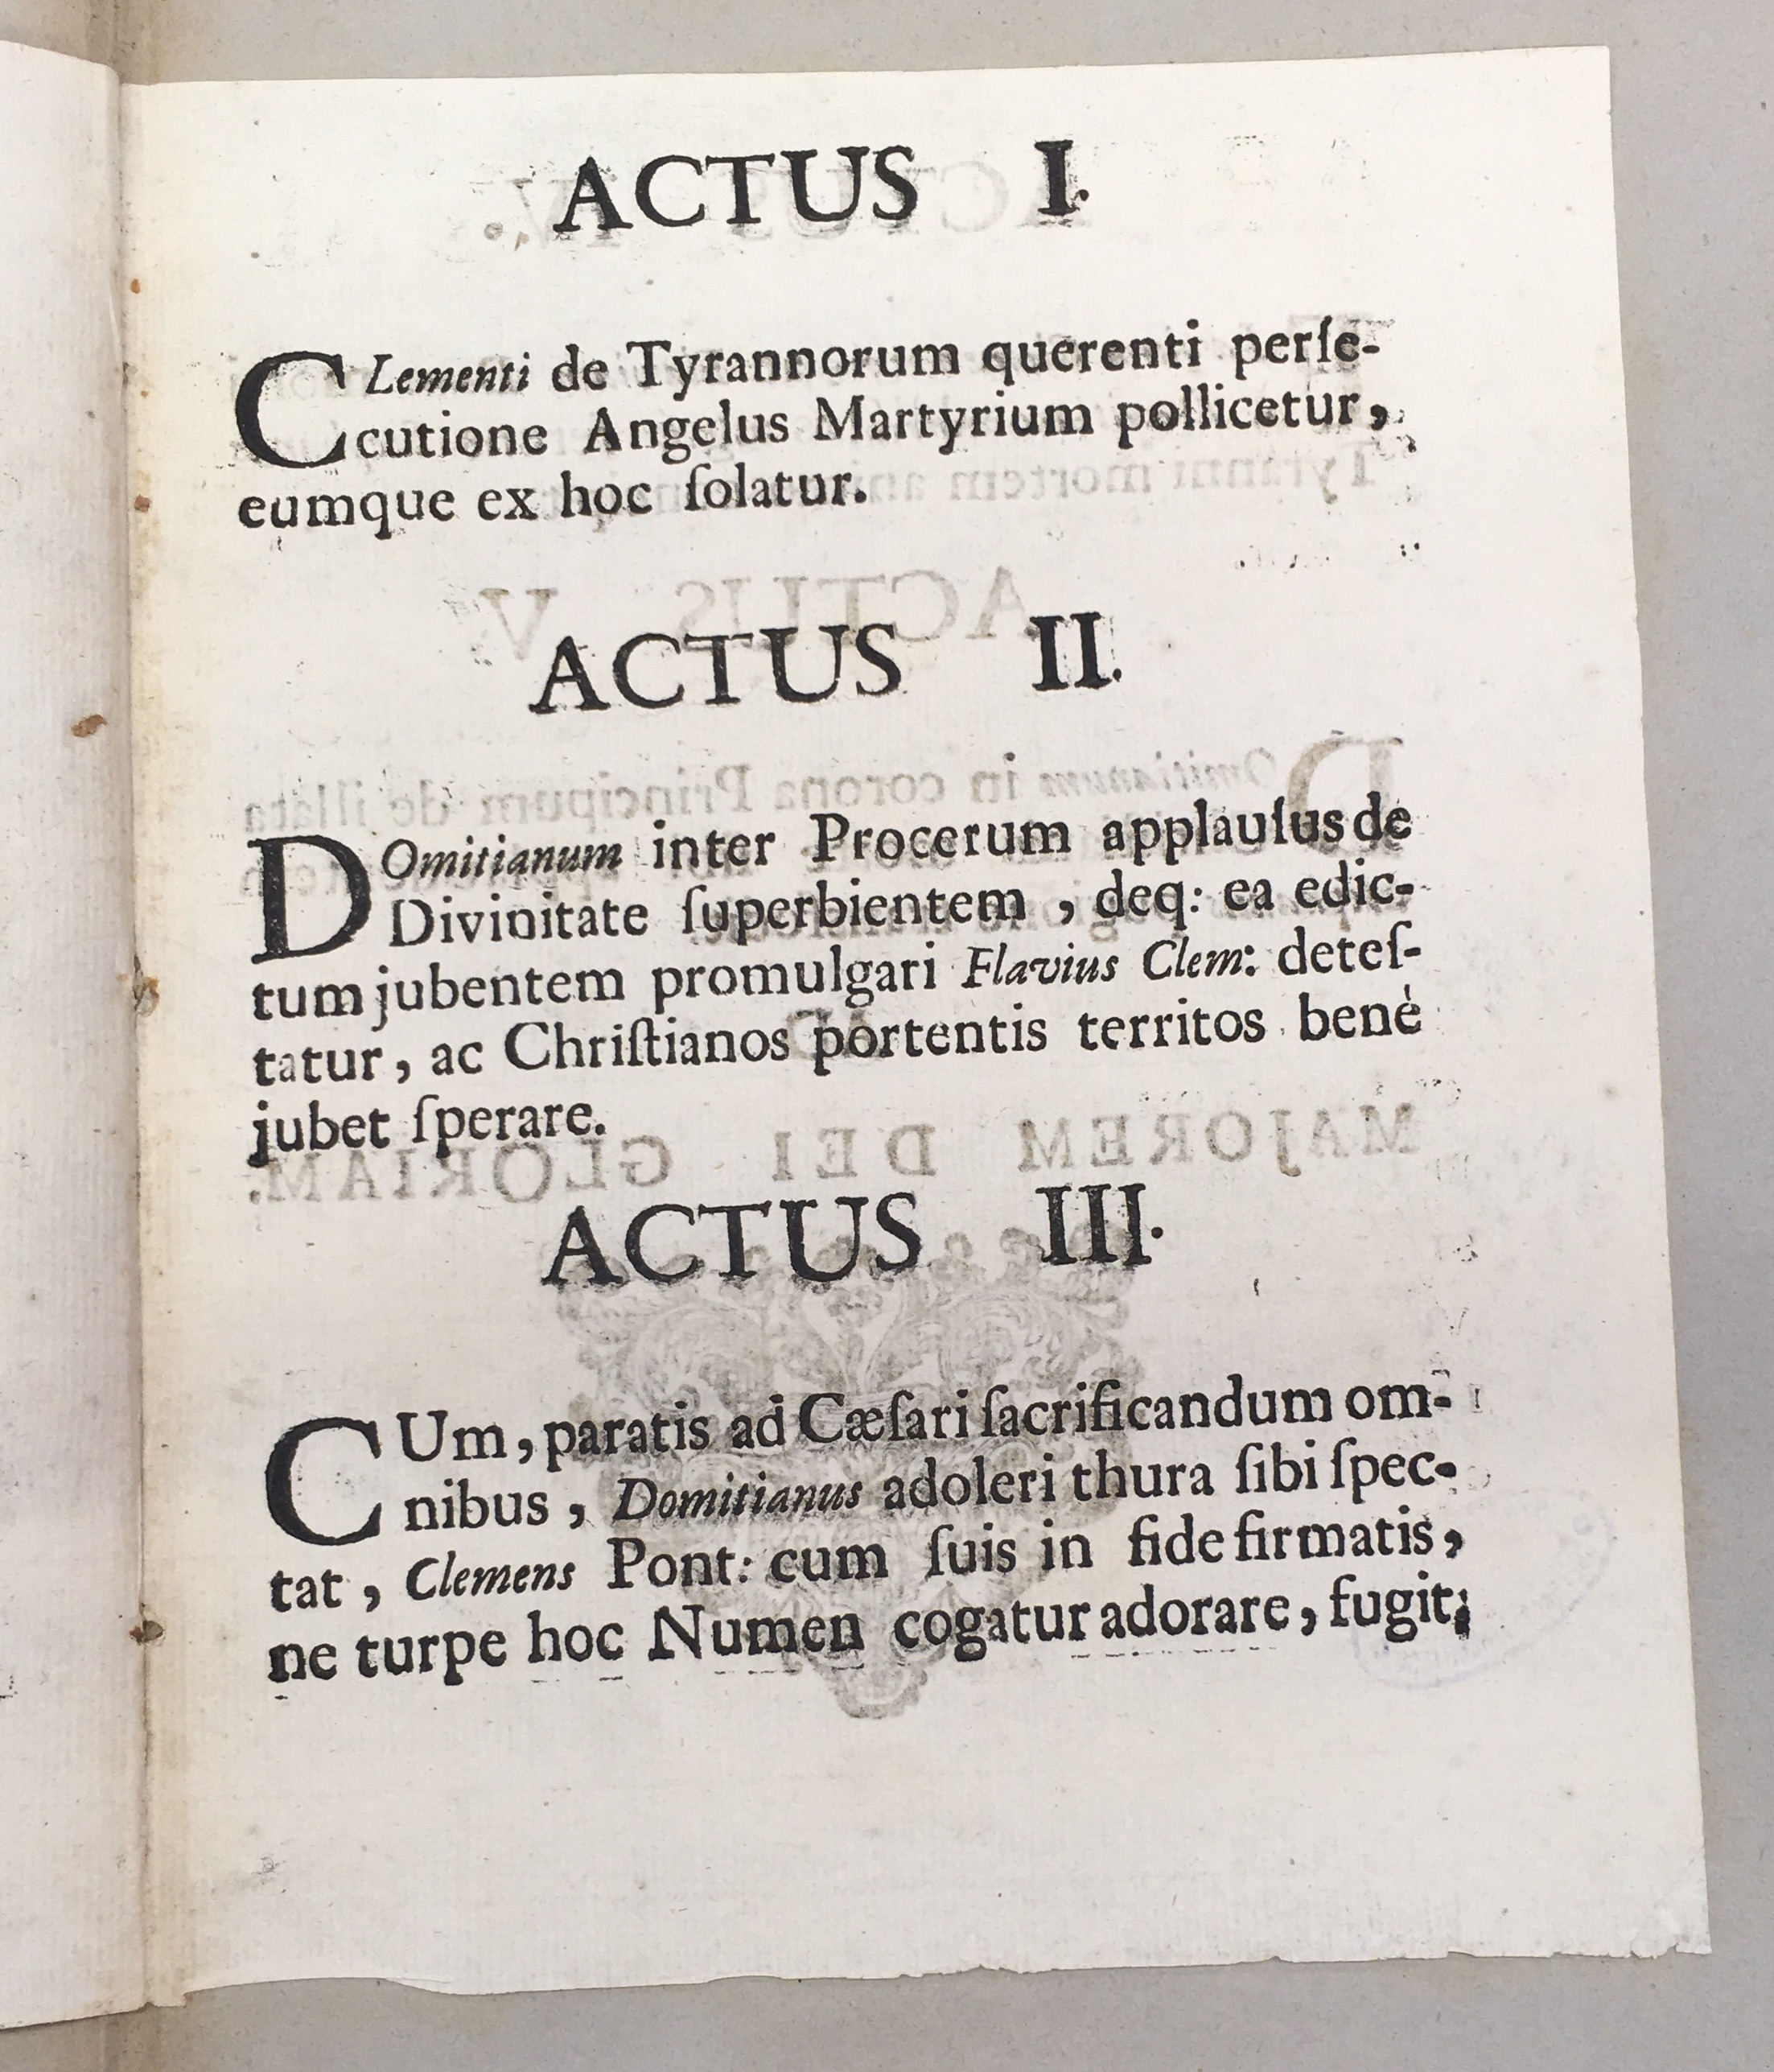 ACTUS I.
CLementi de Tyrannorum querenti perſe-
cutione Angelus Martyrium pollicetur,
eumque ex hoc ſolatur.
ACTUS II.
DOmitianum inter Procerum applauſus de
Divinitate ſuperbientem, deq: ea edic-
tum jubentem promulgari Flavius Clem: deteſ-
tatur, ac Chriſtianos portentis territos benè
jubet ſperare.
ACTUS III.
CUm, paratis ad Cæſari ſacrificandum om-
nibus, Domitianus adoleri thura ſibi ſpec-
tat, Clemens Pont: cum ſuis in fide firmatis,
ne turpe hoc Numen cogatur adorare, fugit;